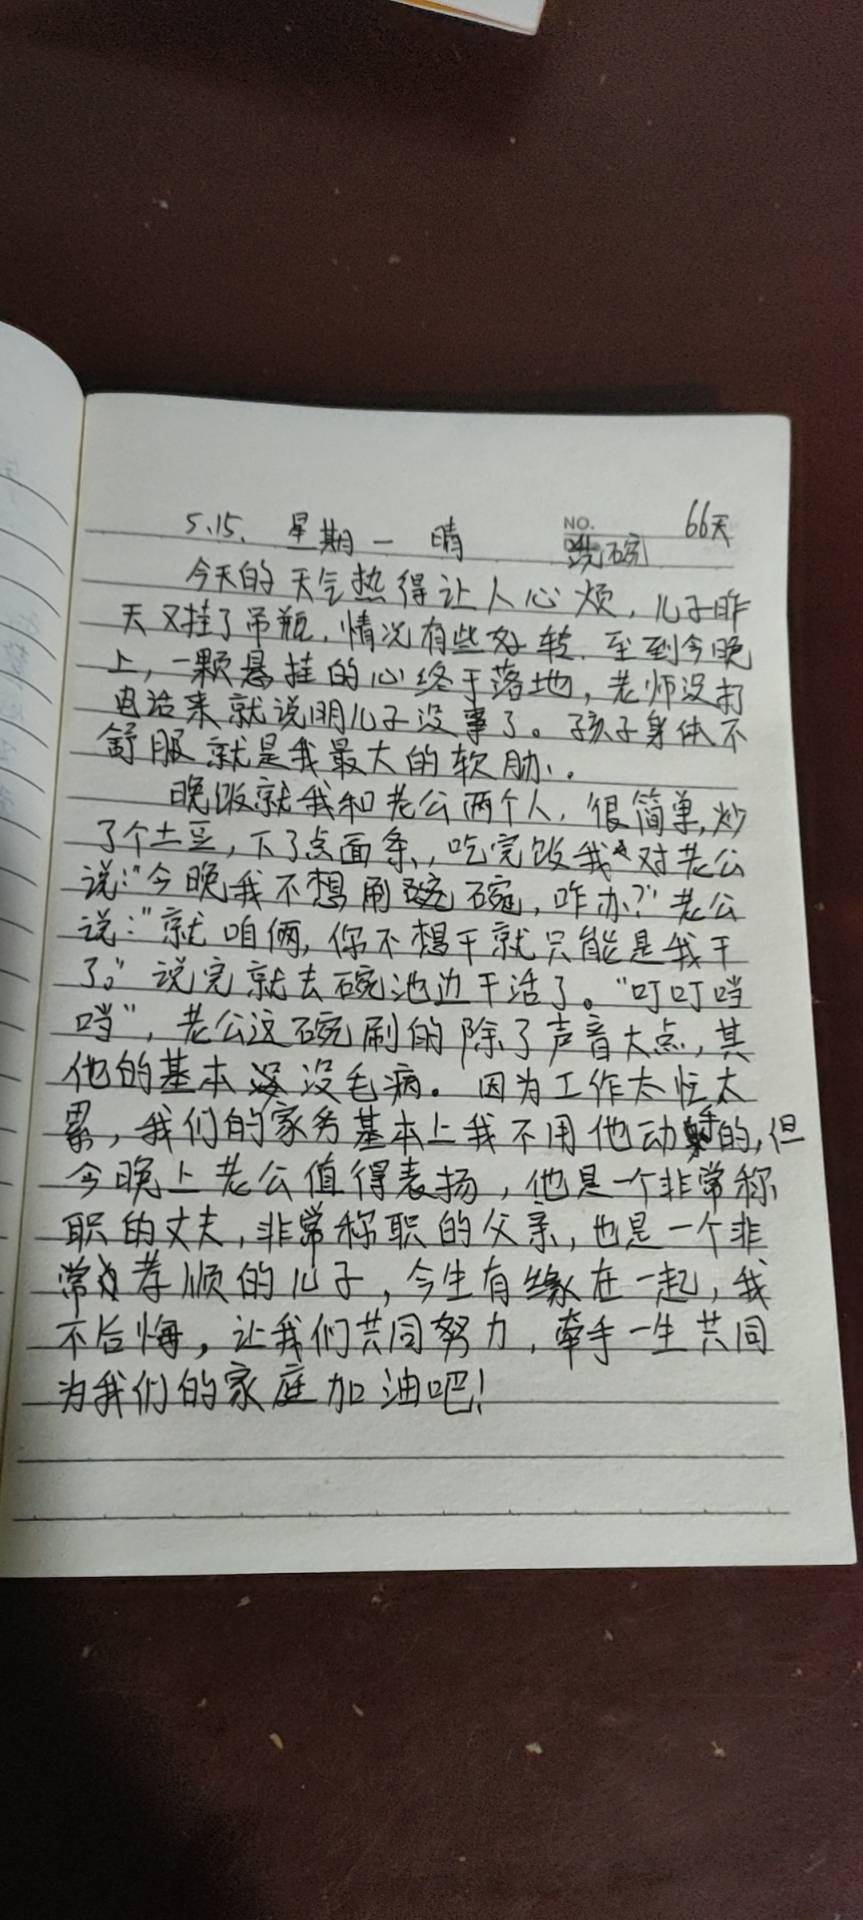 NO. 66天
5.15. 星期一 晴 洗碗
今天的天气热得让人心烦,儿子昨
天又挂了吊瓶,情况有些好转.至到今晚
上,一颗悬挂的心终于落地,老师没打
电话来就说明儿子没事了。孩子身体不
舒服就是我最大的软肋.
晚饭就我和老公两个人,很简单,炒
了个土豆,下了点面条,吃完饭我对老公
说:“今晚我不想刷碗,咋办?”老公
说:“就咱俩,你不想干就只能是我干
了。”说完就去碗池边干活了。“叮叮当
当”,老公这碗刷的除了声音大点,其
他的基本没毛病。因为工作太忙太
累,我们的家务基本上我不用他动手的,但
今晚上老公值得表扬,他是一个非常称
职的丈夫,非常称职的父亲,也是一个非
常孝顺的儿子,今生有缘在一起,我
不后悔,让我们共同努力,牵手一生共同
为我们的家庭加油吧!